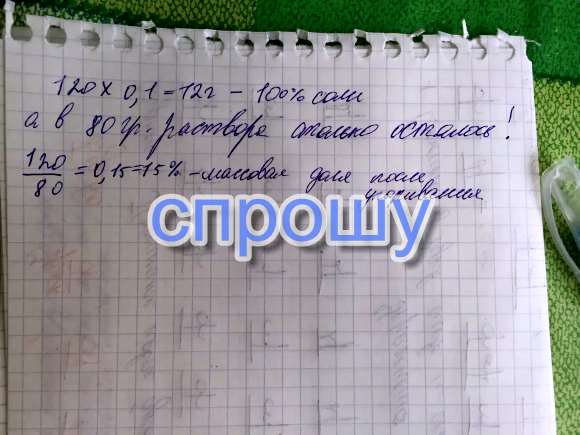 120 х 0,1 = 12г – 100% соли
а в 80 гр. раствора столько осталось!
120/80 = 0,15 = 15% – массовая доля после
упаривания
спрошу